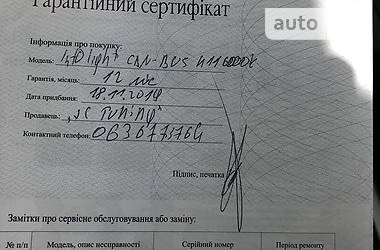 Гарантійний сертифікат
auto
Інформація про покупку:
Модель: light CAN-BUS H11 6000k
Гарантія, місяць: 12 міс
Дата придбання: 18.11.2014
Продавець: "JC TUNING"
Контактний телефон: 0636773764
Підпис, печатка
Замітки про сервісне обслуговування або заміну:
№ п/п Модель, опис несправності Серійний номер Період ремонту